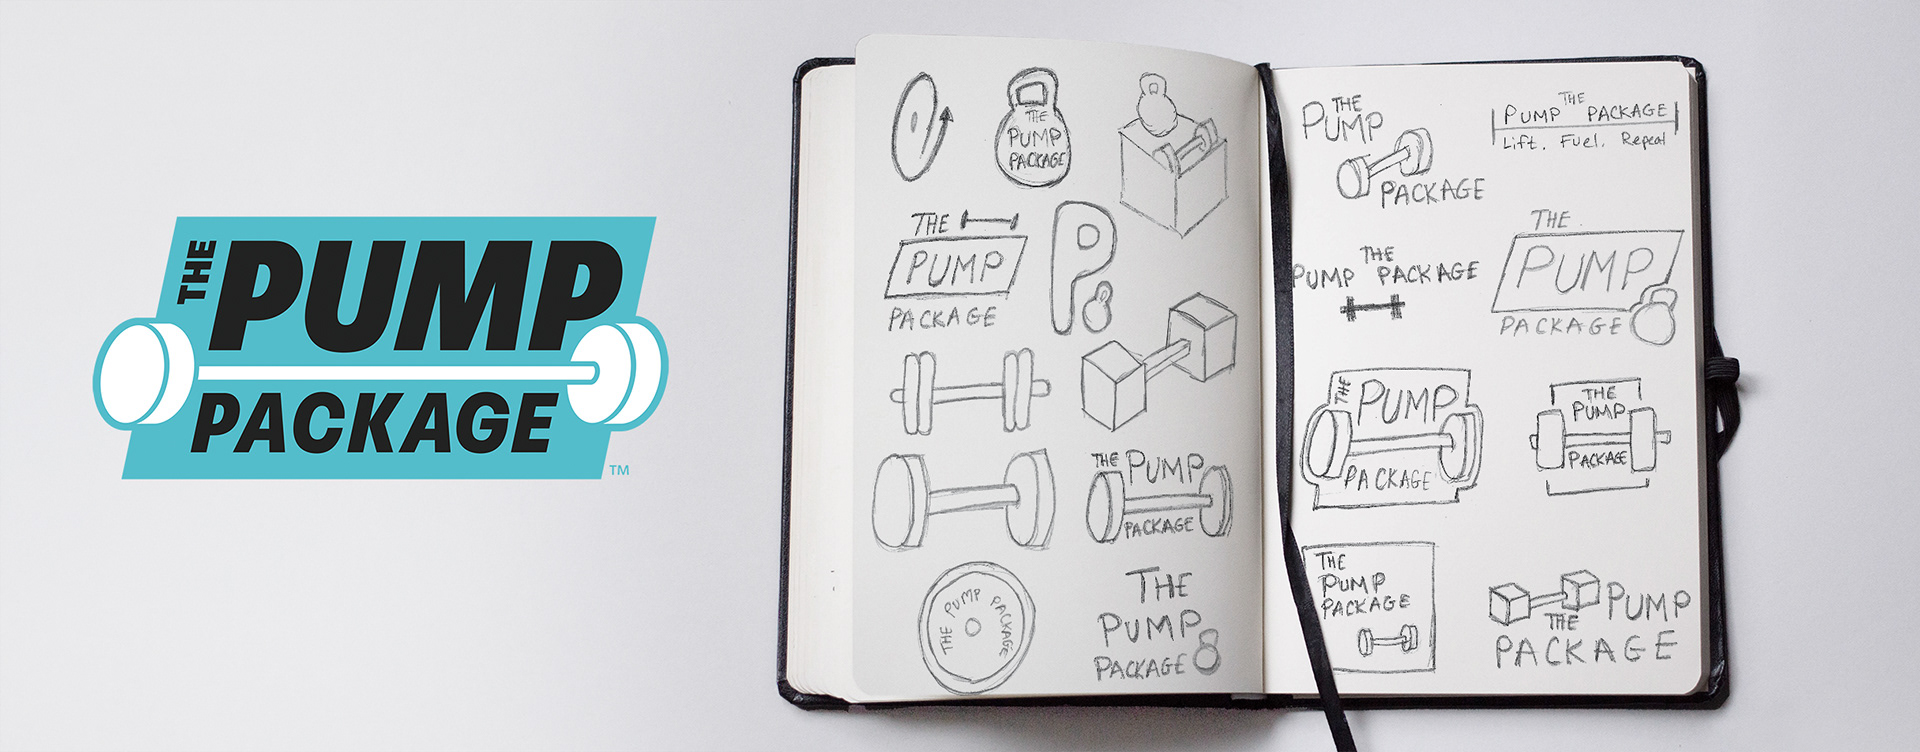 THE
PUMP
PACKAGE
TM
THE
PUMP
PACKAGE
THE
PUMP
PACKAGE
P
THE PUMP
PACKAGE
THE PUMP PACKAGE
THE
PUMP
PACKAGE
THE
PUMP
PACKAGE
THE
PUMP PACKAGE
Lift. Fuel. Repeat
THE
PUMP PACKAGE
THE
PUMP
PACKAGE
THE PUMP
PACKAGE
THE
PUMP
PACKAGE
THE
PUMP
PACKAGE
PUMP
THE
PACKAGE